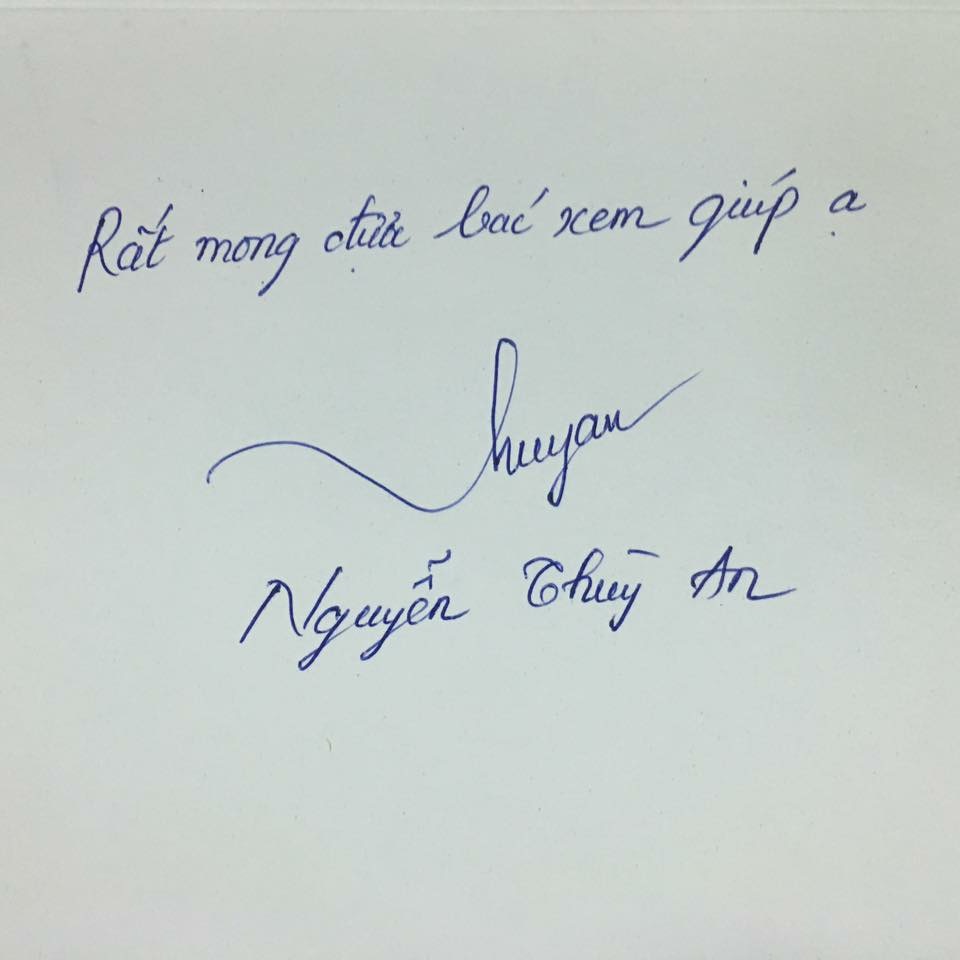 Rất mong được bác xem giúp ạ
Thuyan
Nguyễn Thuỳ An